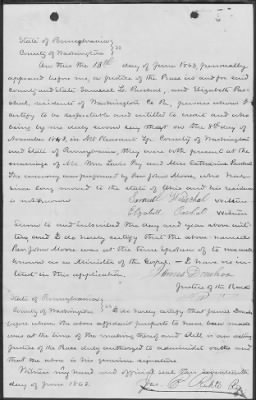 State of Pennsylvania
County of Washington } SS
On this the 13th day of June 1863, personally
appeared before me, a Justice of the Peace in and for said
county and state Samuel L. and Elizabeth
residents of Washington Co Pa, persons whom I
certify to be respectable and entitled to credit and who
being by me duly sworn say that on the day of
November in Mt Pleasant Tp. County of Washington
and State of Pennsylvania, they were both present at the
marriage of Mr Lewis and Miss Catharine
The ceremony was performed by Rev. John Moore, who has
since long moved to the State of Ohio and his residence
is not known
Elizabeth
Sworn to and subscribed the day and year above writ
ten and I do hereby certify that the above named
Rev. John Moore was at the time spoken of to me well
known as a Minister of the Gospel, — I have no in
terest in this application.
James Donahoo
Justice of the Peace
State of Pennsylvania
County of Washington } SS I do hereby certify that James Dona
hoo before whom the above affidavit purports to have been made
was at the time of the making thereof and still is an acting
Justice of the Peace duly authorized to administer oaths and
that the above is his genuine signature.
Witness my hand and official seal this seventeenth
day of June 1863.